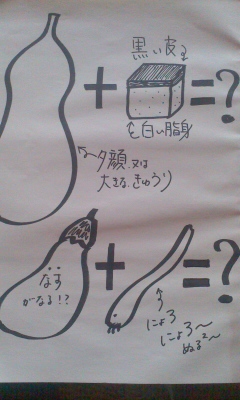 黒い皮
+ = ?
白い脂身
夕顔.又は
大きな.きゅうり
なす
がなる!?
+ = ?
にょろ
にょろ〜
ぬる²〜